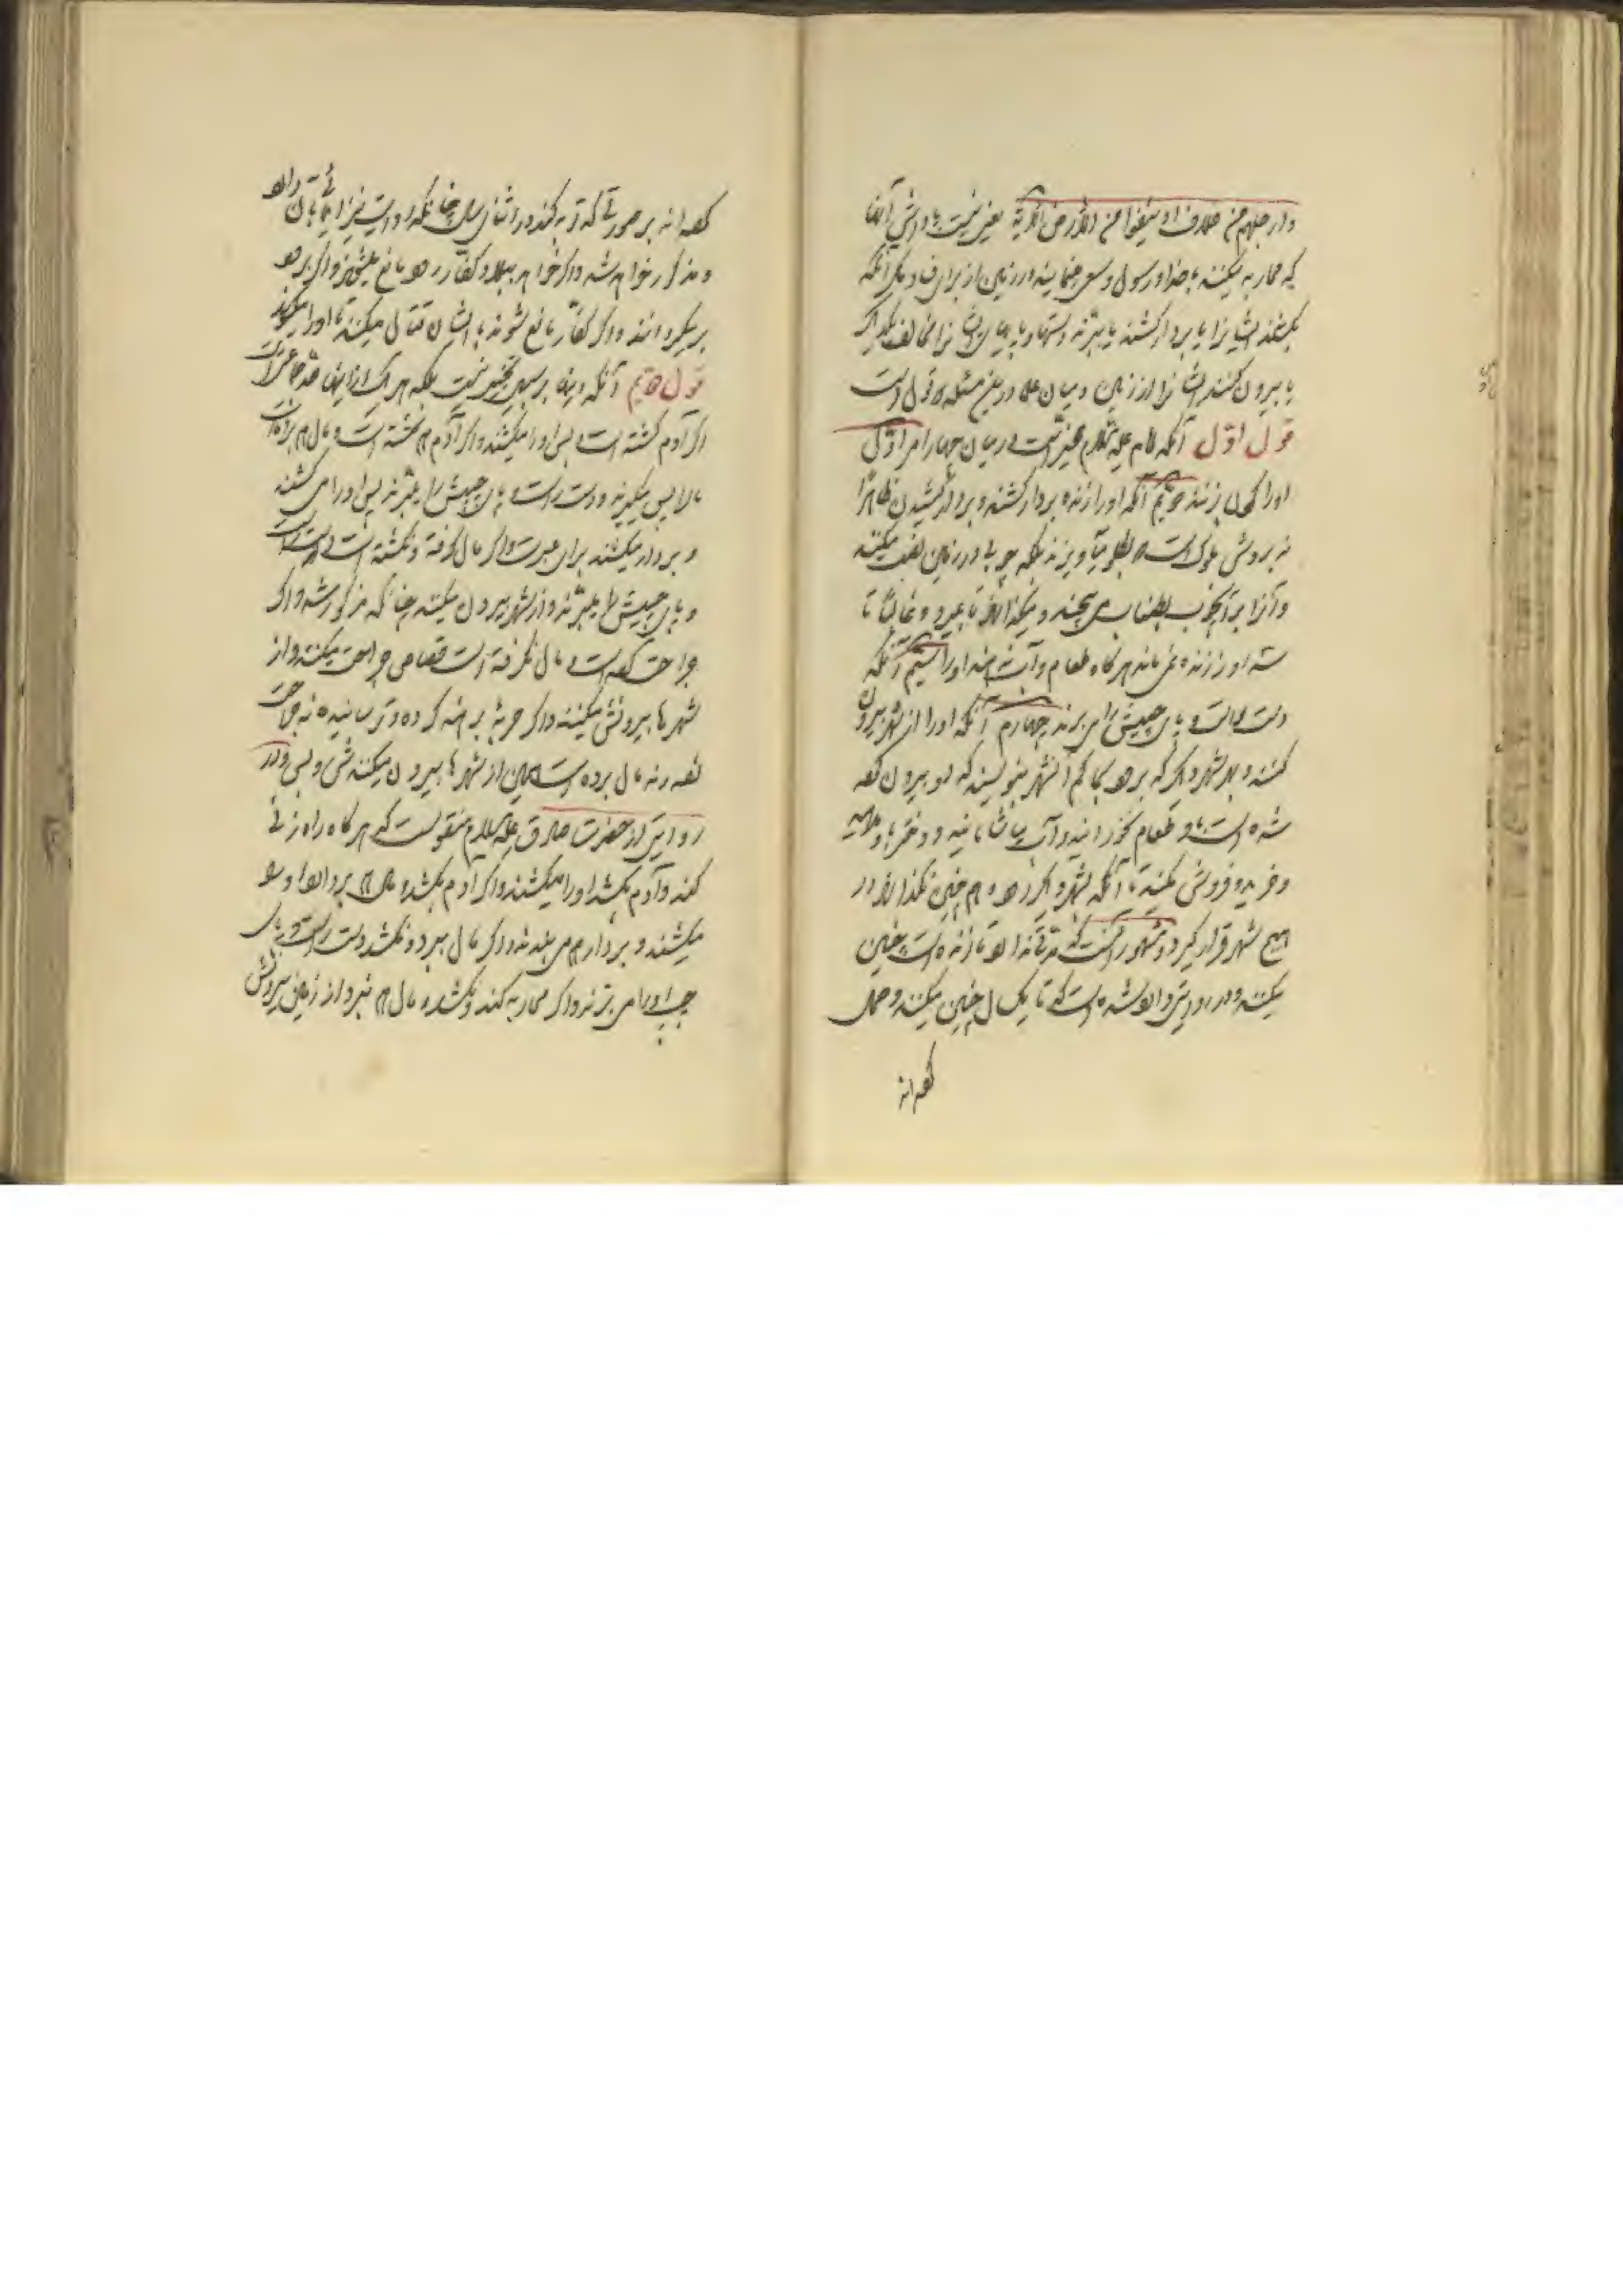 وارجلهم من خلاف او ینفوا من الارض الآیة یعنی نیست پاداش آنان
که محاربه میکنند با خدا و رسول و سعی مینمایند در زمین از برای فساد مگر آنکه
بکشند ایشانرا یا بردار کشند یا ببرند دستها و پایهای ایشانرا مخالف یکدیگر
یا بیرون کنند ایشانرا از زمین و میان علما درین مسئله دو قول است
قول اول آنکه امام علیه السلام مخیر است در میان چهار امر اول
اورا گردن بزنند دویم آنکه اورا زنده بردار کشند و بردار کشیدن ظاهرا
نه بروش ملوک است که بگلو میآویزند بلکه چوبی در زمین نصب میکنند
و آنرا بر آن چوب بطناب می‌بچند و میگذارند تا بمیرد و غالبا تا
سه روز زنده نمی‌ماند هرگاه طعام و آب ندهند اورا سیم آنکه
دست راست و پای چپش را می‌برند چهارم آنکه اورا از شهر بیرون
کنند و بهر شهر دیگر که برود بحاکم آن شهر بنویسند که او بیرون کرده
شده است با او طعام نخورانید و آب میاشامانید و دختر باو مدهید
و خرید و فروش نکنید تا آنکه بشهر دیگر رود و همچنین نگذارند در
هیچ شهر قرار گیرد و مشهور آنست که مدتی ندارد تا زنده است چنین
میکنند و در روایتی وارد شده است که تا یکسال چنین میکنند و حمل
کرده اند
کرده اند بر صورتی که توبه کند در اثنای سال چنانکه در روایت نیز ایمائی بآن دارد
و مذکور خواهد شد و اگر خواهد ببلاد کفار رود مانع میشوند و اگر برود
برمیگردانند و اگر کفار مانع شوند با ایشان قتال میکنند تا اورا بگیرند
قول دویم آنکه اینها بر سبیل تخییر نیست بلکه هر یک از اینها
اگر آدم کشته است پس اورا میکشند و اگر آدم کشته است و مال هم برده است
مال را پس میگیرند و دست راست و پای چپش را میبرند پس اورا می‌کشند
و بردار میکشند برای عبرت و اگر مال گرفته و نکشته است دست راست
و پای چپش را میبرند و از شهر بیرون میکنند چنانکه مذکور شد و اگر
جراحت کرده است و مال نگرفته است قصاص جراحت میکنند و از
شهرها بیرونش میکنند و اگر حربه برهنه کرده و ترسانیده نه جراحت
کرده و نه مال برده است همین از شهرها بیرون میکنندش و بس و در
روایتی از حضرت صادق علیه السلام منقولست که هرگاه راه زنی
کند و آدم بکشد اورا میکشند و اگر آدم بکشد و مال هم بردارد اورا
میکشند و بردار هم می‌بندند و اگر مال ببرد و نکشد دست راست و پای
چپ اورا می‌برند و اگر محاربه کند و نکشد و مال هم نبرد از زمین بیرونش